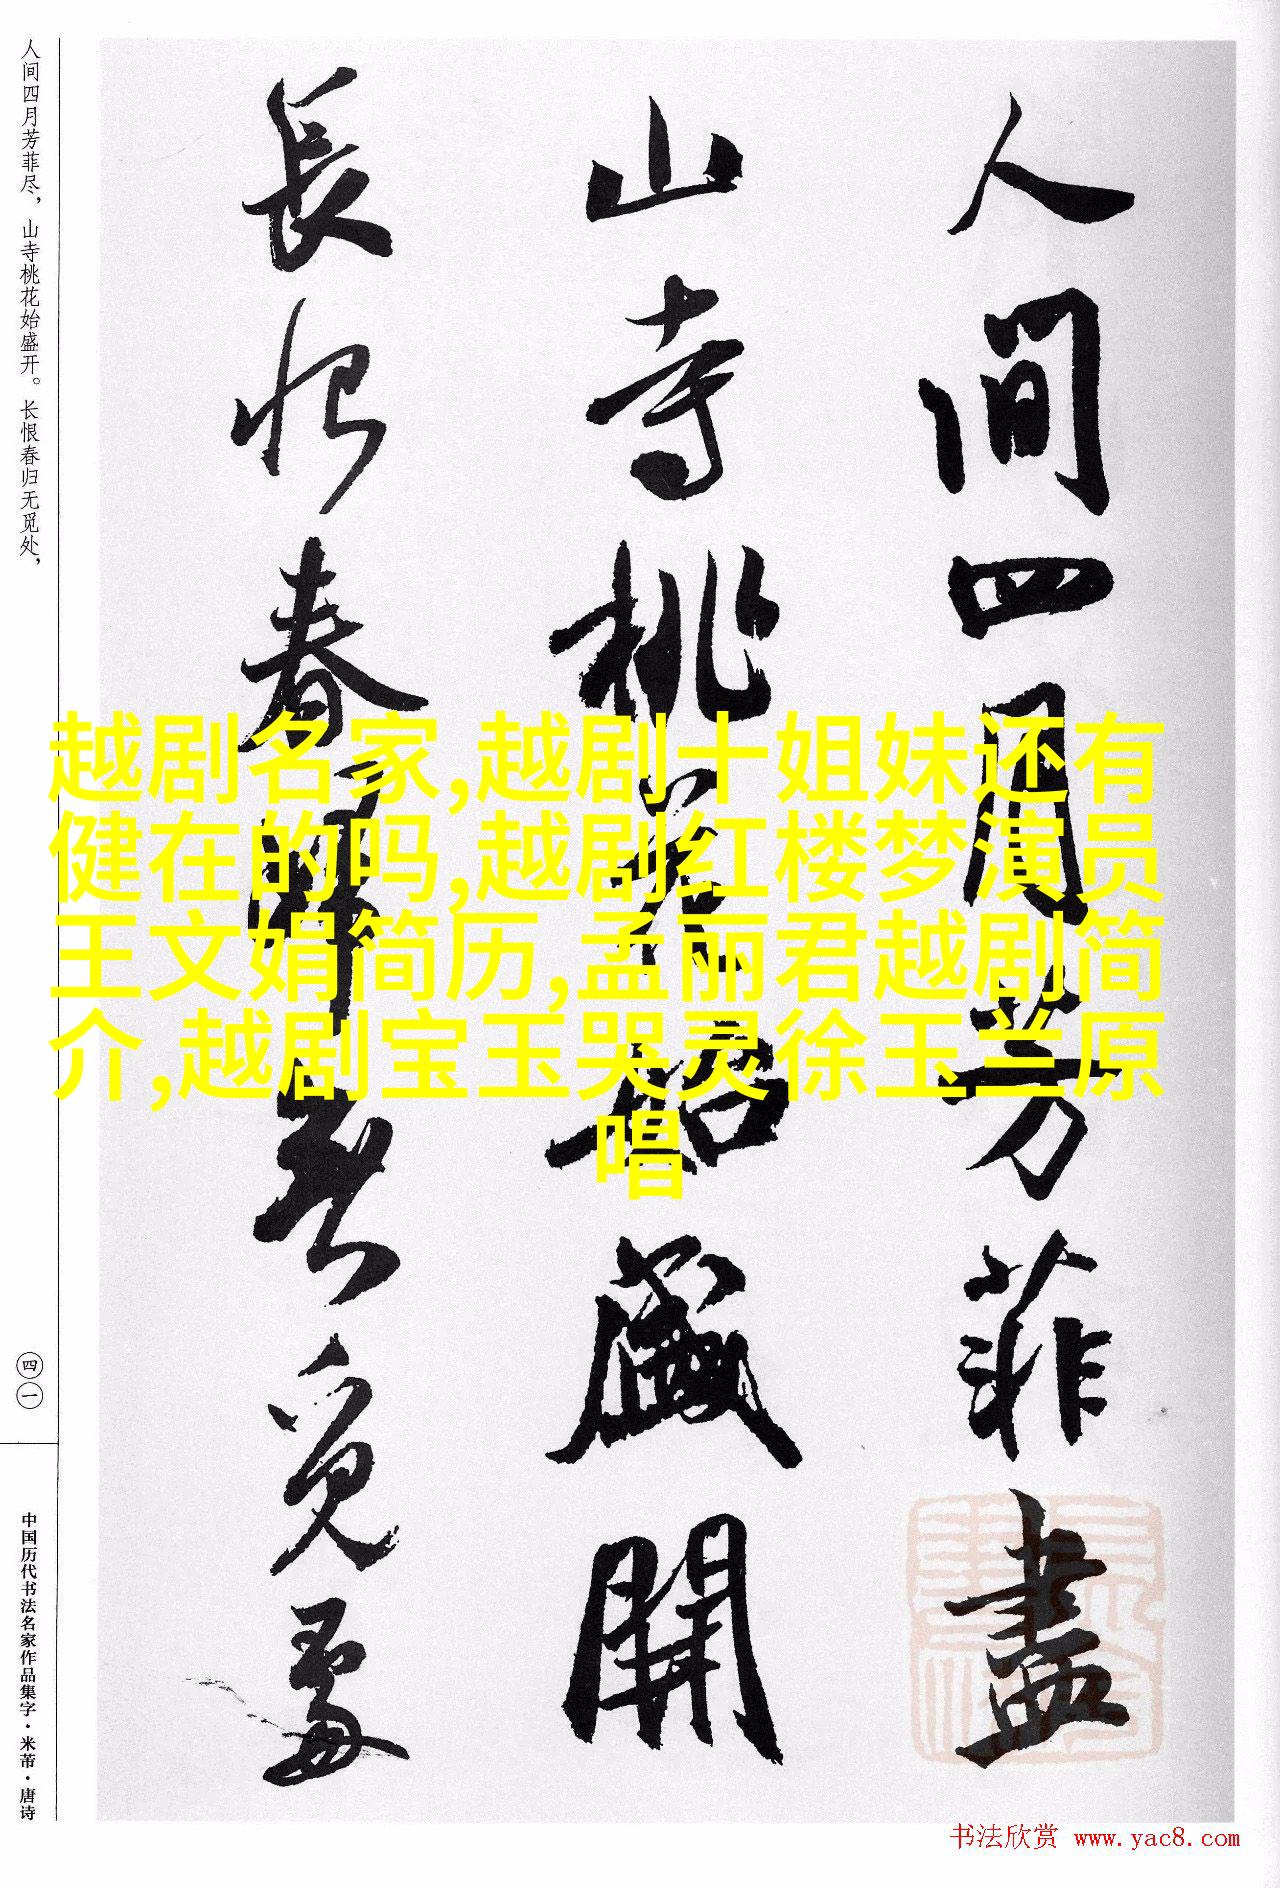 人间四月芳菲尽，山寺桃花始盛开。长恨春归无觅处，
四一
中国历代书法名家作品集字·米芾·唐诗
人間四月芳菲盡
山寺桃花始盛開
長恨春歸無覓處
越剧名家,越剧十姐妹还有
健在的吗,越剧红楼梦演员
王文娟简历,孟丽君越剧简
介,越剧宝玉哭灵徐玉兰原
唱
书法欣赏 www.yac8.com